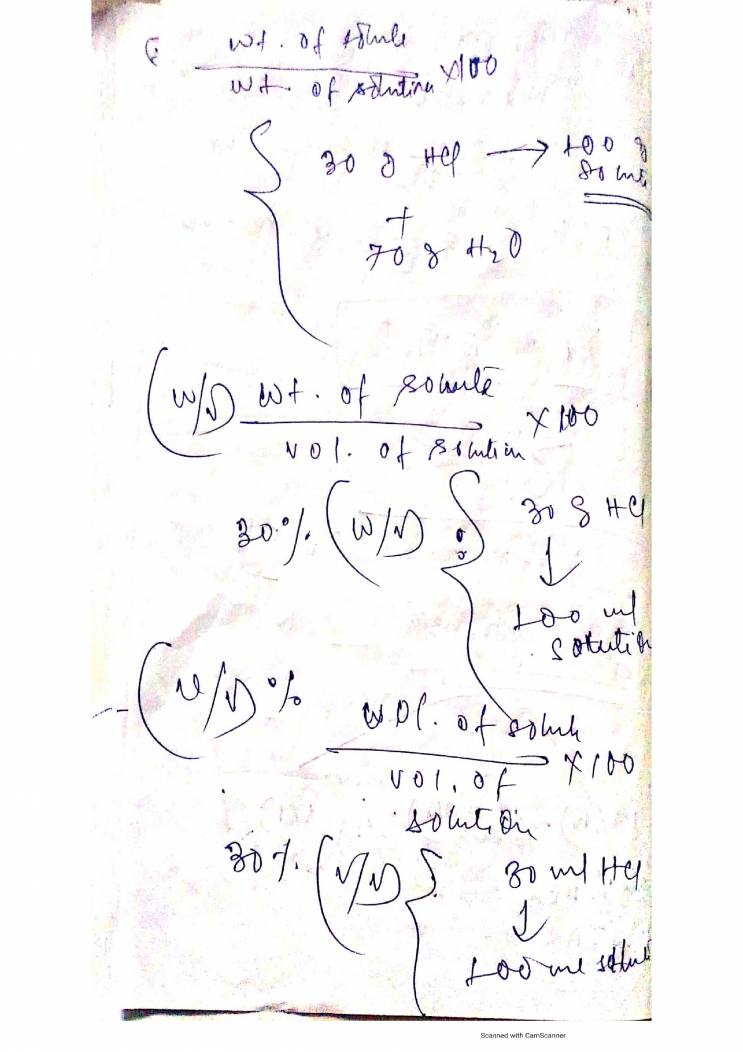 wt. of solute
wt. of solution ×100
30 g HCl → 100 g
+
70 g H2O
(w/v) wt. of solute
vol. of solution ×100
30% (w/v) : 30 g HCl
↓
100 ml
solution
(v/v) %
vol. of solute
vol. of ×100
solution
30% (v/v) : 30 ml HCl
↓
100 ml
Scanned with CamScanner